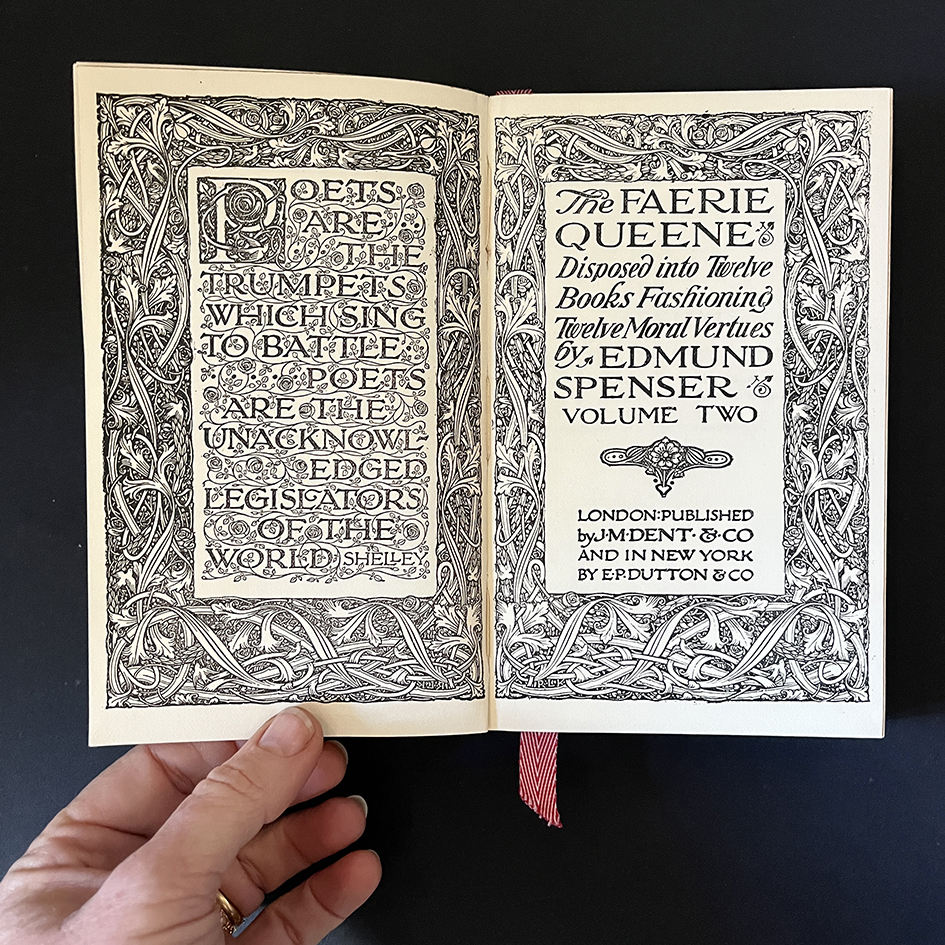 POETS
ARE
THE
TRUMPETS
WHICH SING
TO BATTLE
POETS
ARE THE
UNACKNOWL-
EDGED
LEGISLATORS
OF THE
WORLD SHELLEY
The FAERIE
QUEENE
Disposed into Twelve
Books Fashioning
Twelve Moral Vertues
by EDMUND
SPENSER
VOLUME TWO
LONDON: PUBLISHED
by J·M·DENT· & CO
AND IN NEW YORK
BY E·P·DUTTON & CO